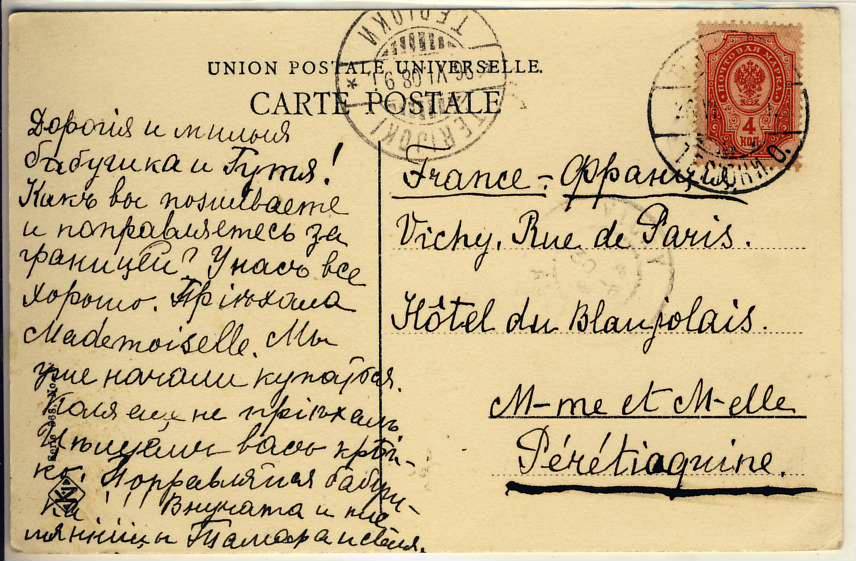 UNION POSTALE UNIVERSELLE.
CARTE POSTALE
ПОЧТОВАЯ МАРКА
4
КОП.
ТЕРІОКИ
TERIJOKI
Дорогія и милыя
бабушка и Гутя!
Какъ вы поживаете
и поправляетесь за
границей? У насъ все
хорошо. Пріѣхала
Mademoiselle. Мы
уже начали купаться.
Коля еще не пріѣхалъ
Цѣлуемъ васъ крѣп-
ко. Поправляйся бабуш-
ка!!! Внучата и пле
мянницы Тамара и
France - Франція
Vichy, Rue de Paris.
Hôtel du Blanjolais.
M-me et M-elle
Pérétiaguine.